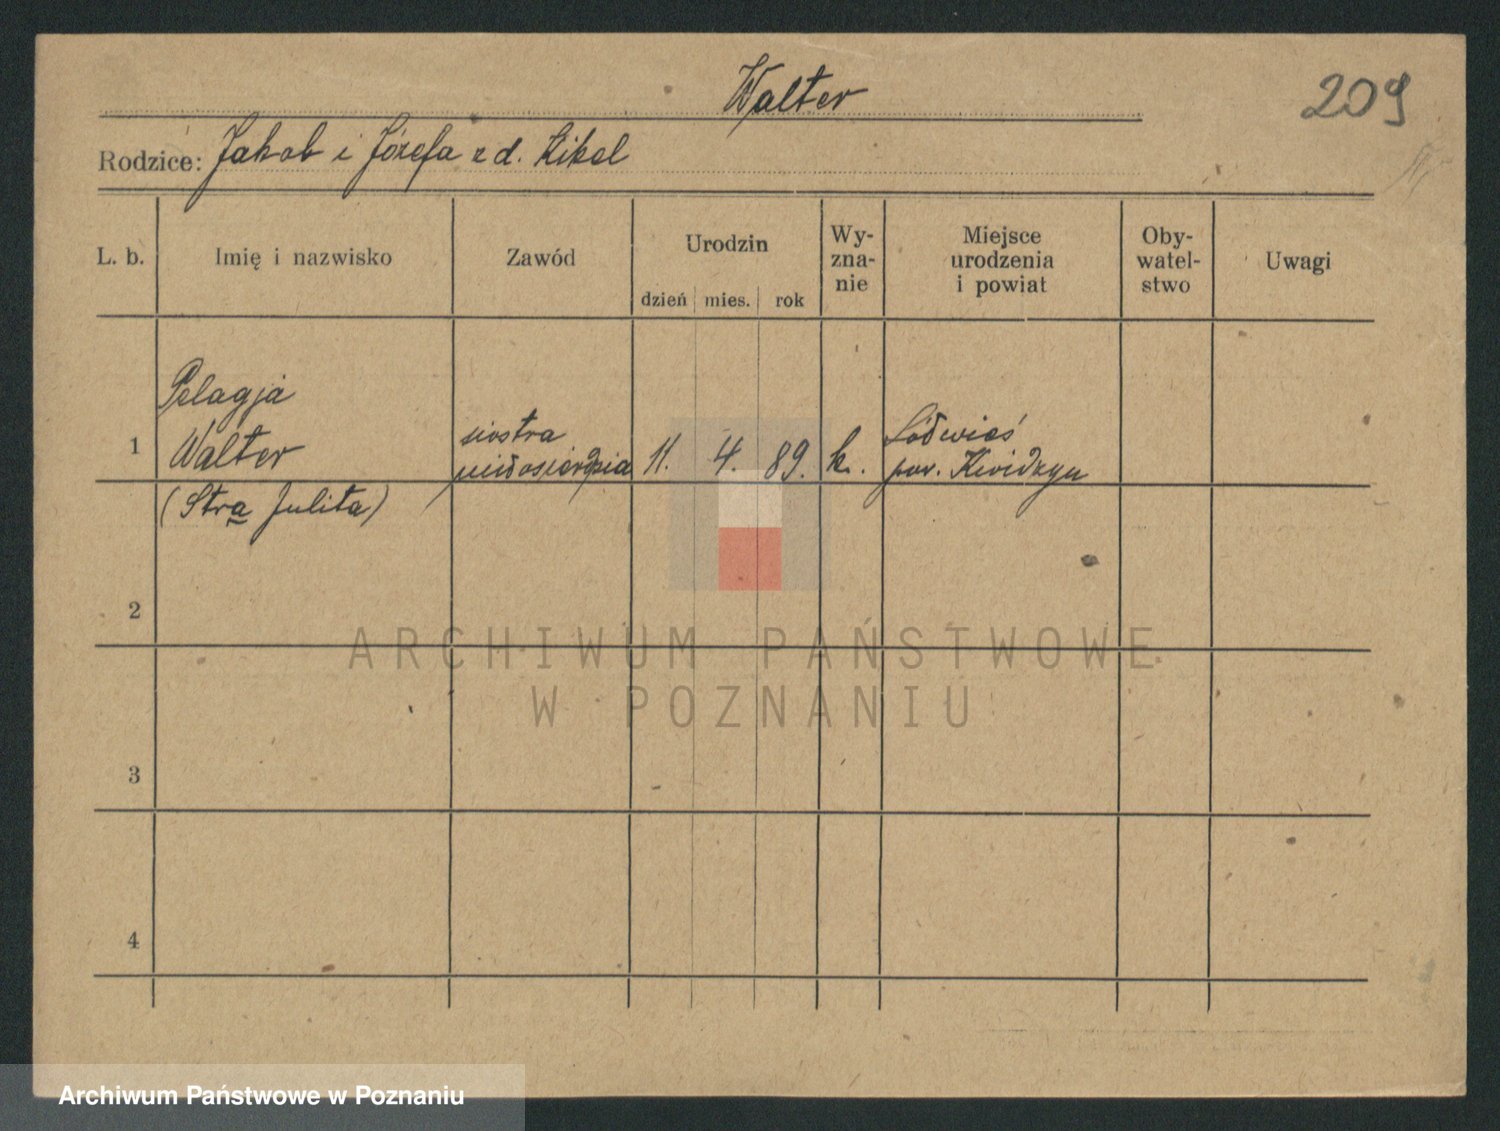 Walter
209
Rodzice: Jakob i Józefa z d. Zikel
L. b.
Imię i nazwisko
Zawód
Urodzin
dzień mies. rok
Wy-
zna-
nie
Miejsce
urodzenia
i powiat
Oby-
watel-
stwo
Uwagi
1
Pelagja
Walter
(Stra Julita)
siostra
miłosierdzia
11. 4. 89.
k.
pow. Kwidzyn
2
3
4
ARCHIWUM PAŃSTWOWE
W POZNANIU
Archiwum Państwowe w Poznaniu